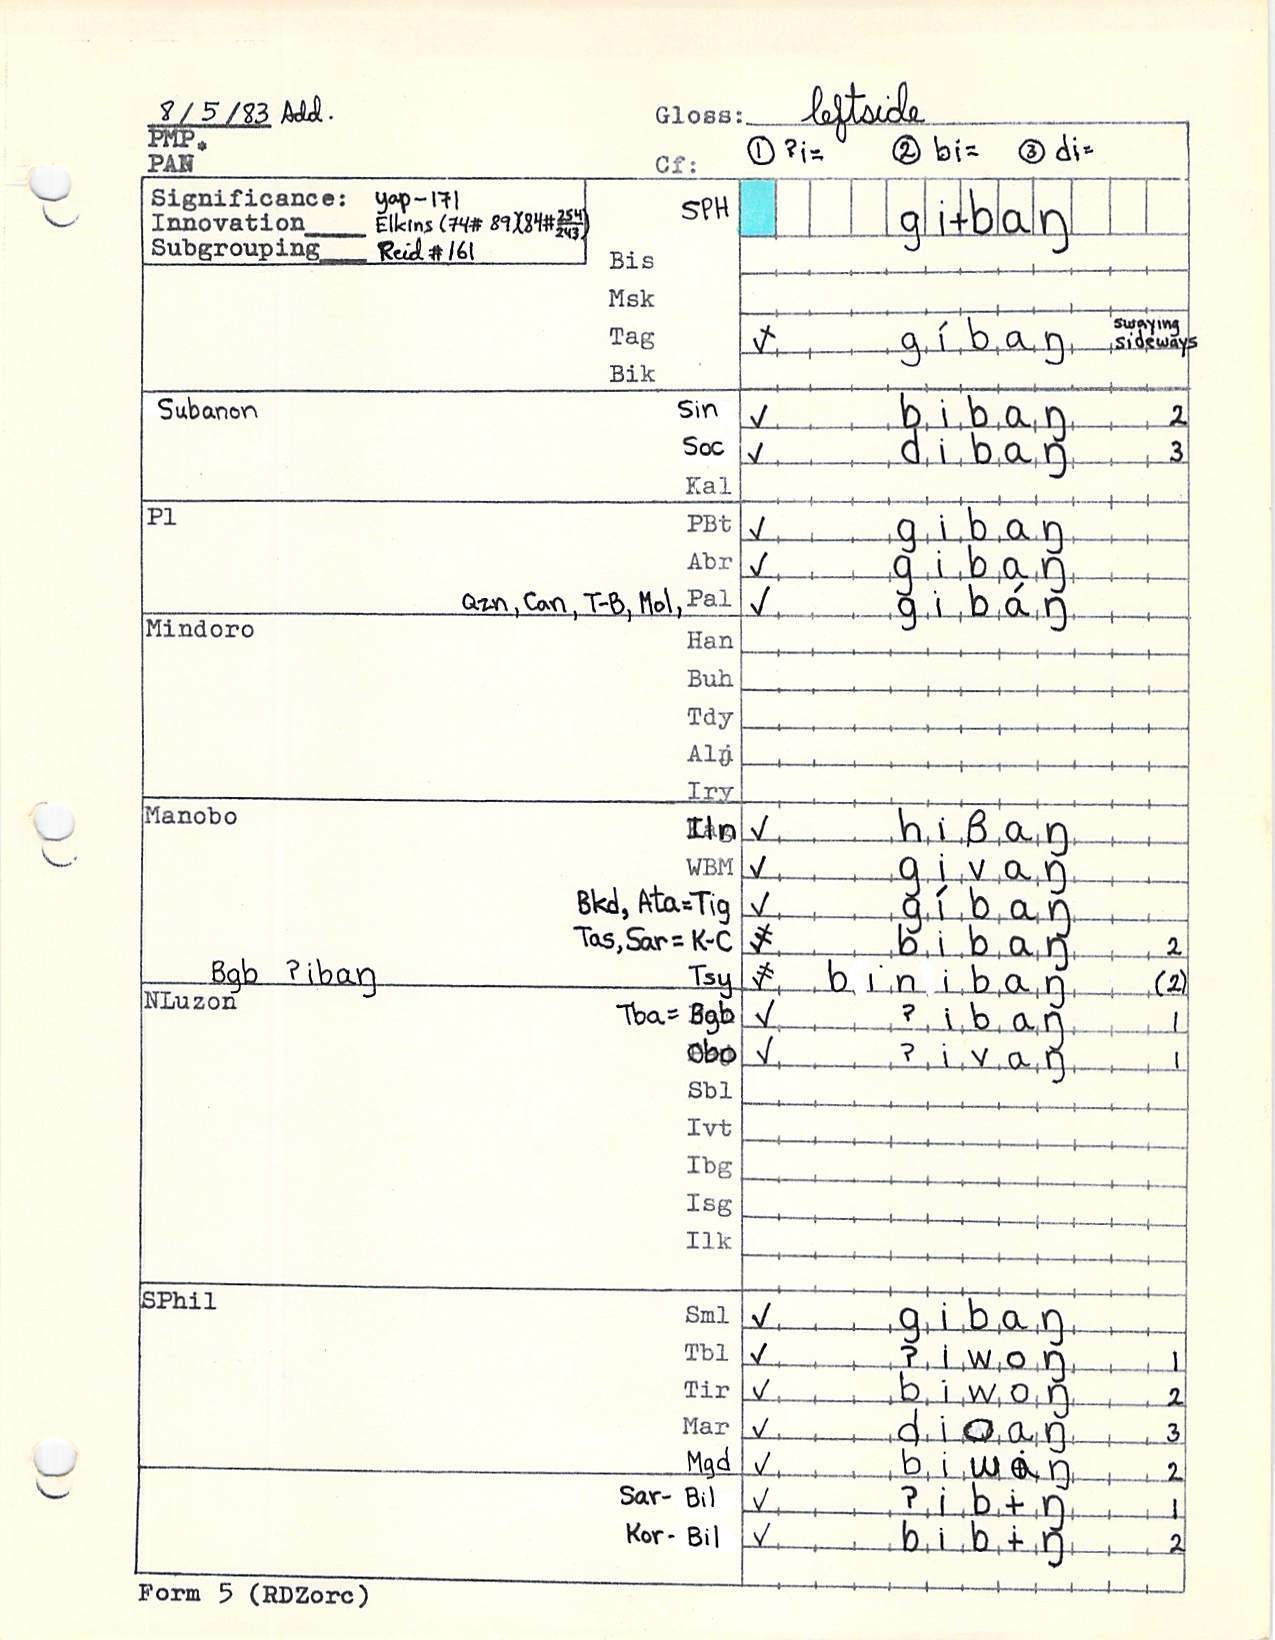 8/5/83 Add.
Gloss: leftside
PMP.
PAN
Cf: ① ?i= ② bi= ③ di=
Significance: Yap-171
Innovation____ Elkins (74# 89)(84# 254/243)
Subgrouping____ Reid #161
SPH gi+baŋ
Bis
Msk
Tag gíbaŋ swaying sideways
Bik
Subanon Sin ✓ bibaŋ 2
Soc ✓ dibaŋ 3
Kal
Pl PBt ✓ gibaŋ
Abr ✓ gibaŋ
Qzn, Can, T-B, Mol, Pal ✓ gibáŋ
Mindoro
Han
Buh
Tdy
Alj
Iry
Manobo Iln ✓ hiβaŋ
WBM ✓ givaŋ
Bkd, Ata=Tig ✓ gíbaŋ
Tas, Sar = K-C bibaŋ 2
Bgb ?ibaŋ Tsy binibaŋ (2)
NLuzon Tba = Bgb ✓ ?ibaŋ 1
Obo ✓ ?ivaŋ 1
Sbl
Ivt
Ibg
Isg
Ilk
SPhil Sml ✓ gibaŋ
Tbl ✓ ?iwoŋ 1
Tir ✓ biwoŋ 2
Mar ✓ dioaŋ 3
Mgd ✓ biwaŋ 2
Sar- Bil ✓ ?ibɨŋ 1
Kor- Bil ✓ bibɨŋ 2
Form 5 (RDZorc)